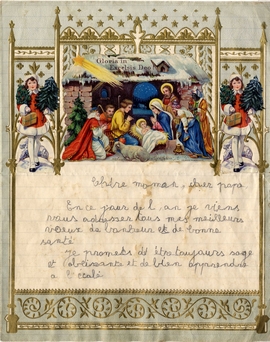 Gloria in
Excelsis Deo
Chère maman, cher papa
En ce jour de l'an je viens
vous adresser tous mes meilleurs
vœux de bonheur et de bonne
santé
Je promets d'être toujours sage
et obéissante et de bien apprendre
à l'école